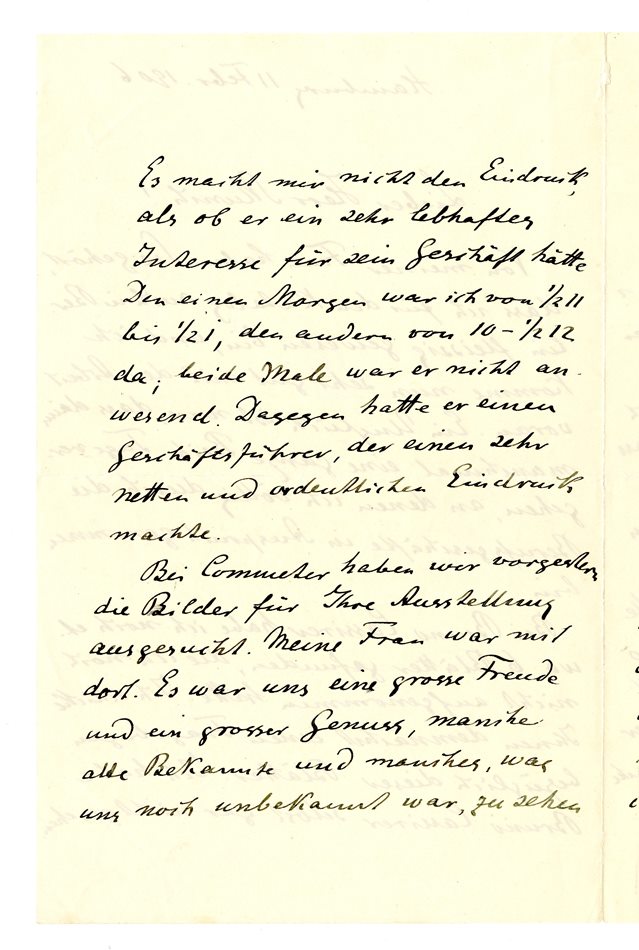 Es macht mir nicht den Eindruck,
als ob er ein sehr lebhaftes
Interesse für sein Geschäft hätte
Den einen Morgen war ich von ½11
bis ½1, den andern von 10–½12
da; beide Male war er nicht an-
wesend. Dagegen hatte er einen
Geschäftsführer, der einen sehr
netten und ordentlichen Eindruck
machte.
Bei Commeter haben wir vorgestern
die Bilder für Ihre Ausstellung
ausgesucht. Meine Frau war mit
dort. Es war uns eine grosse Freude
und ein grosser Genuss, manche
alte Bekannte und manches, was
uns noch unbekannt war, zu sehen
Hamburg 11 Febr. 1906